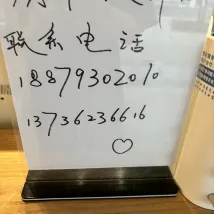 联系电话
18879302010
13736236616